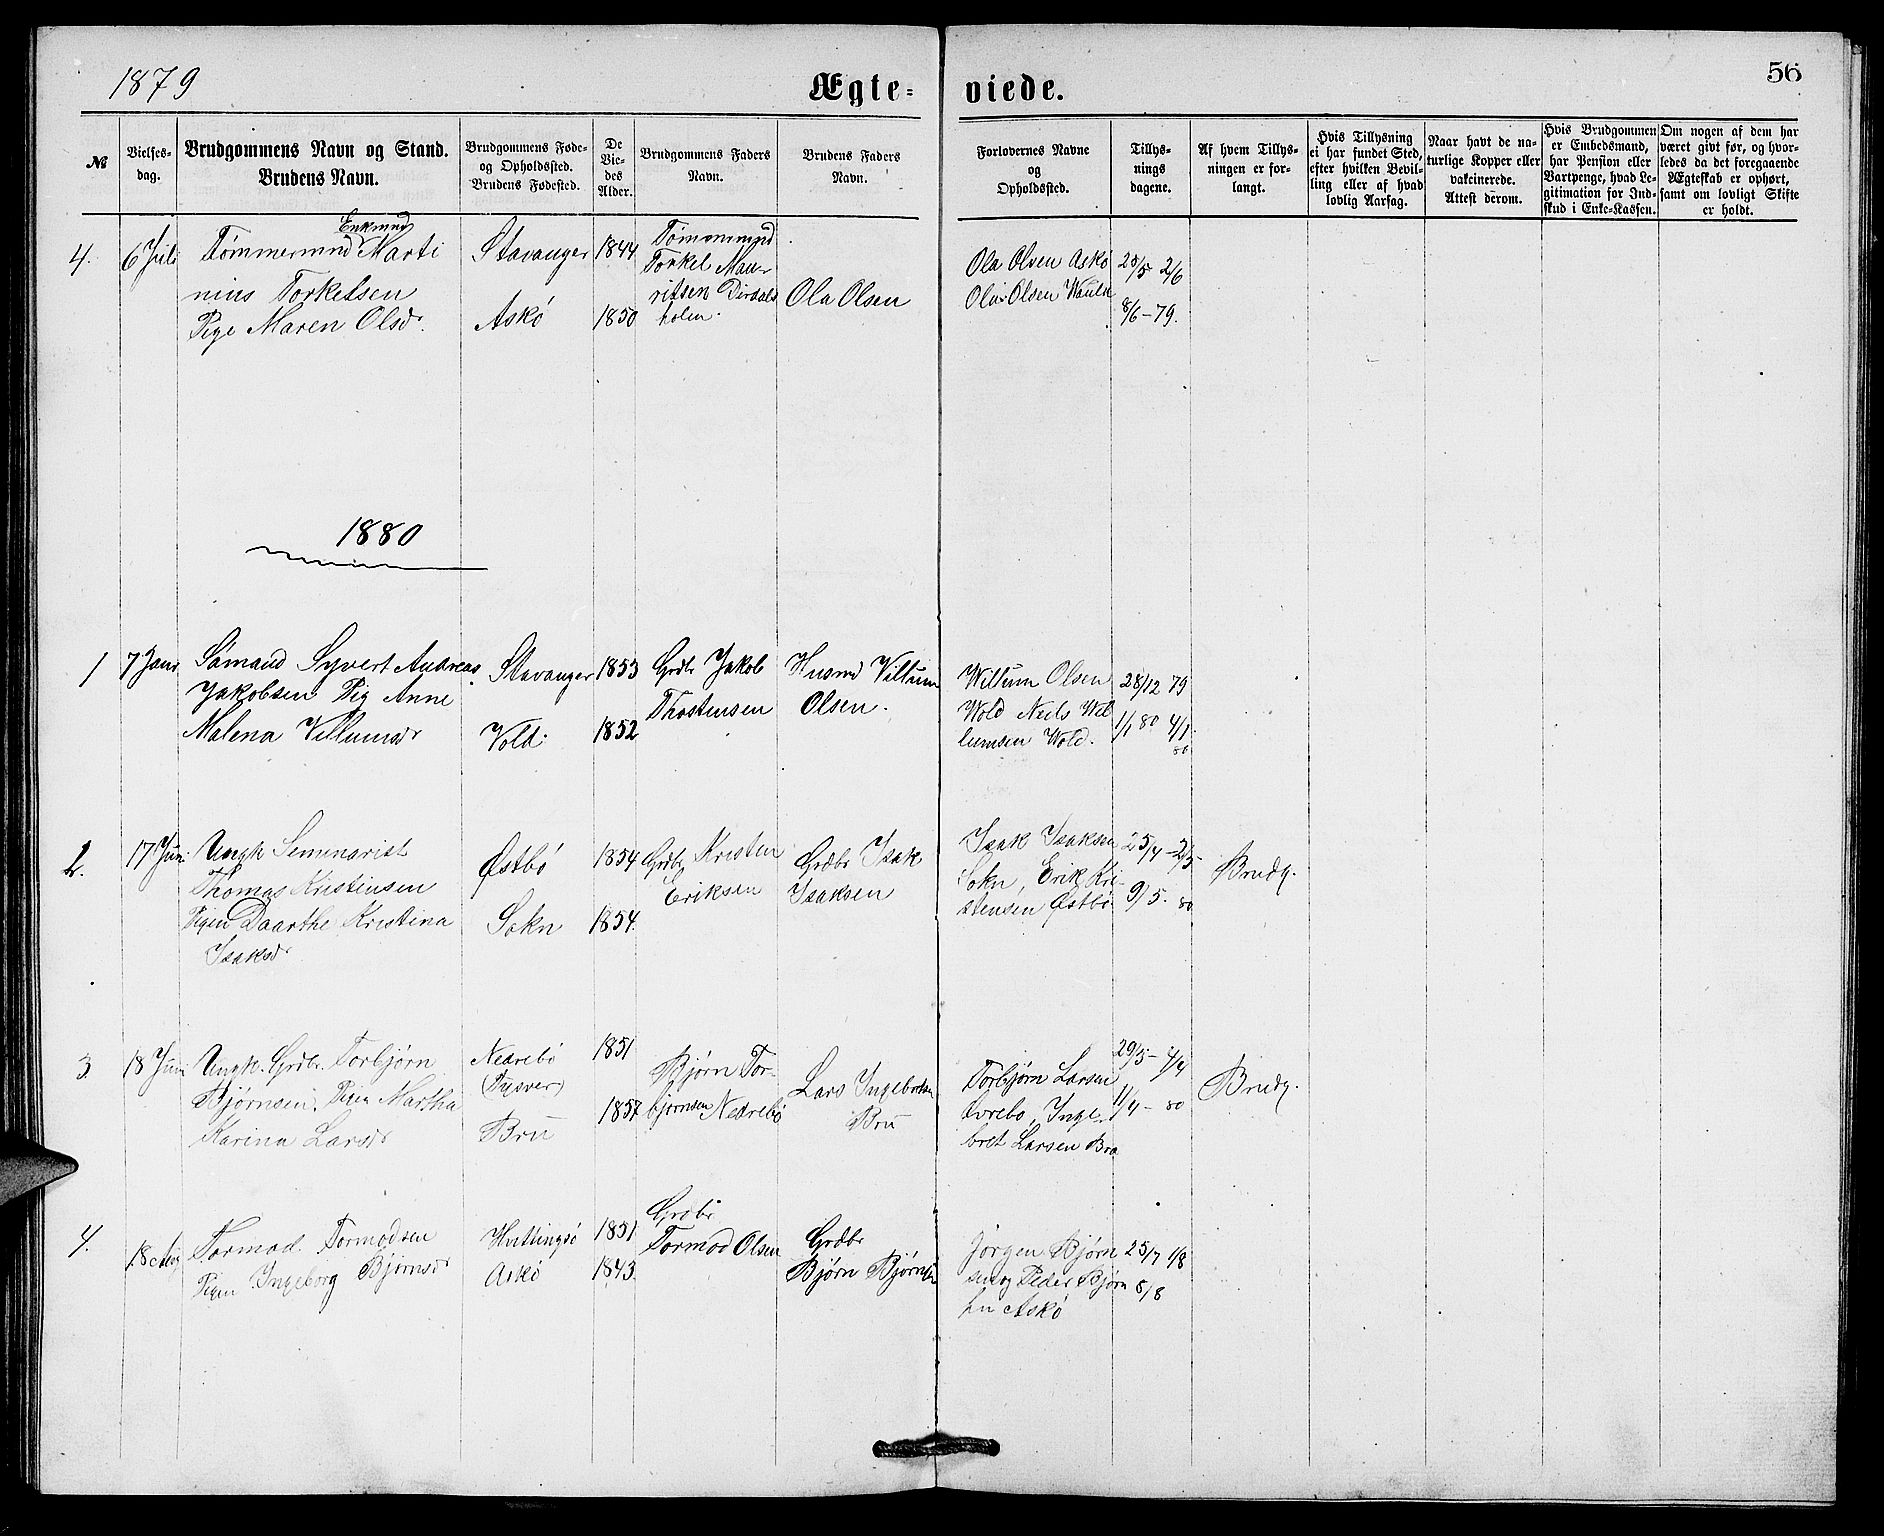 1879
Ægte-
viede.
56
№
Vielses-
dag.
Brudgommens Navn og Stand.
Brudens Navn.
Brudgommens Føde-
og Opholdssted.
Brudens Fødested.
De
Vie-
des
Alder.
Brudgommens Faders
Navn.
Brudens Faders
Navn.
Forlovernes Navne
og
Opholdssted.
Tillys-
nings
dagene.
Af hvem Tillys-
ningen er for-
langt.
Hvis Tillysning
ei har fundet Sted,
efter hvilken Bevil-
ling eller af hvad
lovlig Aarsag.
Naar havt de na-
turlige Kopper eller
vakcinerede.
Attest derom.
Hvis Brudgommen
er Embedsmand,
har Pension eller
Vartpenge, hvad Le-
gitimation for Ind-
skud i Enke-Kassen.
Om nogen af dem har
været givt før, og hvor-
ledes da det foregaaende
Ægteskab er ophørt,
samt om lovligt Skifte
er holdt.
4.
6 Juli
Enkmnd
Tømmermnd Marti
nius Torkelsen
Pige Maren Olsdr.
Stavanger
Askö
1844
1850
Tømmermnd
Torkel Mau-
ritsen Dirdals
holen.
Ola Olsen
Ola Olsen Askö
Ola Olsen
25/5 2/6
8/6-79.
1880
1
7 Janr
Sömand Syvert Andreas
Jakobsen Pig Anne
Malena Villumsdr
Stavanger
Vold.
1853
1852
Grdbr Jakob
Thostensen
Husmd Villum
Olsen.
Willum Olsen
Wold Neils Wil
lumsen Wold.
28/12 79
1/1 80 4/1
80
2.
17 Juni
Ungk Seminarist
Thomas Kristensen
Pigen Daarthe Kristina
Isaksdr
Østbö
Sokn
1854
1854.
Grdbr Kristen
Eriksen
Grdbr Isak
Isaksen
Isak Isaksen
Sokn, Erik Kri-
stensen Østbö
25/4-2/5-
9/5. 80
Brudg.
3.
18 Juni
Ungk. Grdbr. Torbjørn
Bjørnsen. Pigen Martha
Karina Larsdr
Nedrebö
(Tysver)
Bru
1851
1857
Bjørn Tor-
bjørnsen Nedrebö
Lars Ingebretsen
Bru
Torbjørn Larsen
Inge
bret Larsen Bru
29/3- 4/4
11/4- 80
Brudg.
4.
18 Aug
Tormod Tormodsen
Pigen Ingeborg Bjørnsdr
Hettingsö
Askö
1851
1843.
Grdbr
Tormod Olsen
Grdbr
Bjørn Bjørnsen
Jörgen Bjørn
sen og Peder Bjørn
sen Askö
25/7 1/8
8/8